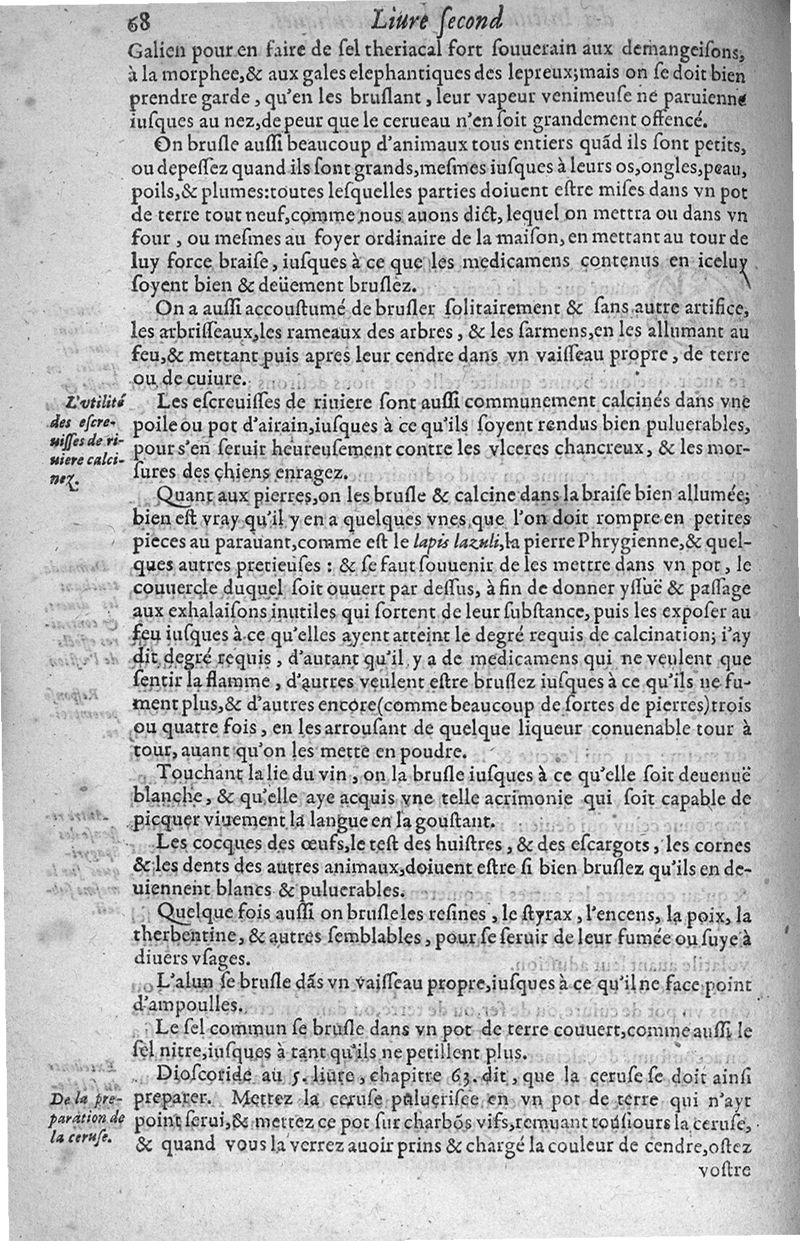 68 Liure ſecond
Galien pour en faire de ſel theriacal fort ſouuerain aux demangeiſons,
à la morphee,& aux gales elephantiques des lepreux;mais on ſe doit bien
prendre garde, qu'en les bruſlant, leur vapeur venimeuſe ne paruienne
iuſques au nez,de peur que le cerueau n'en ſoit grandement offencé.
On bruſle auſſi beaucoup d'animaux tous entiers quãd ils ſont petits,
ou depeſſez quand ils ſont grands,meſmes iuſques à leurs os,ongles,peau,
poils,& plumes:toutes leſquelles parties doiuent eſtre miſes dans vn pot
de terre tout neuf,comme nous auons dict, lequel on mettra ou dans vn
four, ou meſmes au foyer ordinaire de la maiſon, en mettant au tour de
luy force braiſe, iuſques à ce que les medicamens contenus en iceluy
ſoyent bien & deüement bruſlez.
On a auſſi accouſtumé de bruſler ſolitairement & ſans autre artifice,
les arbriſſeaux,les rameaux des arbres, & les ſarmens,en les allumant au
feu,& mettant puis apres leur cendre dans vn vaiſſeau propre, de terre
ou de cuiure.
L'vtilité
des eſcre-
uiſſes de ri-
uiere calci-
nez.
Les eſcreuiſſes de riuiere ſont auſſi communement calcinés dans vne
poile ou pot d'airain,iuſques à ce qu'ils ſoyent rendus bien puluerables,
pour s'en ſeruir heureuſement contre les vlceres chancreux, & les mor-
ſures des chiens enragez.
Quant aux pierres,on les bruſle & calcine dans la braiſe bien allumée;
bien eſt vray qu'il y en a quelques vnes que l'on doit rompre en petites
pieces au parauant,comme eſt le lapis lazuli,la pierre Phrygienne,& quel-
ques autres pretieuſes : & ſe faut ſouuenir de les mettre dans vn pot, le
couuercle duquel ſoit ouuert par deſſus, à fin de donner yſſuë & paſſage
aux exhalaiſons inutiles qui ſortent de leur ſubſtance, puis les expoſer au
feu iuſques à ce qu'elles ayent atteint le degré requis de calcination; i'ay
dit degré requis, d'autant qu'il y a de medicamens qui ne veulent que
ſentir la flamme, d'autres veulent eſtre bruſlez iuſques à ce qu'ils ne fu-
ment plus,& d'autres encore(comme beaucoup de ſortes de pierres)trois
ou quatre fois, en les arrouſant de quelque liqueur conuenable tour à
tour, auant qu'on les mette en poudre.
Touchant la lie du vin, on la bruſle iuſques à ce qu'elle ſoit deuenuë
blanche, & qu'elle aye acquis vne telle acrimonie qui ſoit capable de
picquer viuement la langue en la gouſtant.
Les cocques des œufs,le teſt des huiſtres, & des eſcargots, les cornes
& les dents des autres animaux,doiuent eſtre ſi bien bruſlez qu'ils en de-
uiennent blancs & puluerables.
Quelque fois auſſi on bruſle les reſines, le ſtyrax, l'encens, la poix, la
therbentine, & autres ſemblables, pour ſe ſeruir de leur fumée ou ſuye à
diuers vſages.
L'alun ſe bruſle dãs vn vaiſſeau propre,iuſques à ce qu'il ne face point
d'ampoulles.
Le ſel commun ſe bruſle dans vn pot de terre couuert,comme auſſi le
ſel nitre,iuſques à tant qu'ils ne petillent plus.
De la pre-
paration de
la ceruſe.
Dioſcoride au 5. liure, chapitre 63. dit, que la ceruſe ſe doit ainſi
preparer. Mettez la ceruſe puluerisée en vn pot de terre qui n'ayt
point ſerui,& mettez ce pot ſur charbõs vifs,remuant touſiours la ceruſe,
& quand vous la verrez auoir prins & chargé la couleur de cendre,oſtez
voſtre